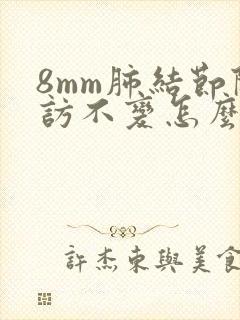 8mm肺結節隨
訪不變怎麼
許杰東與美食